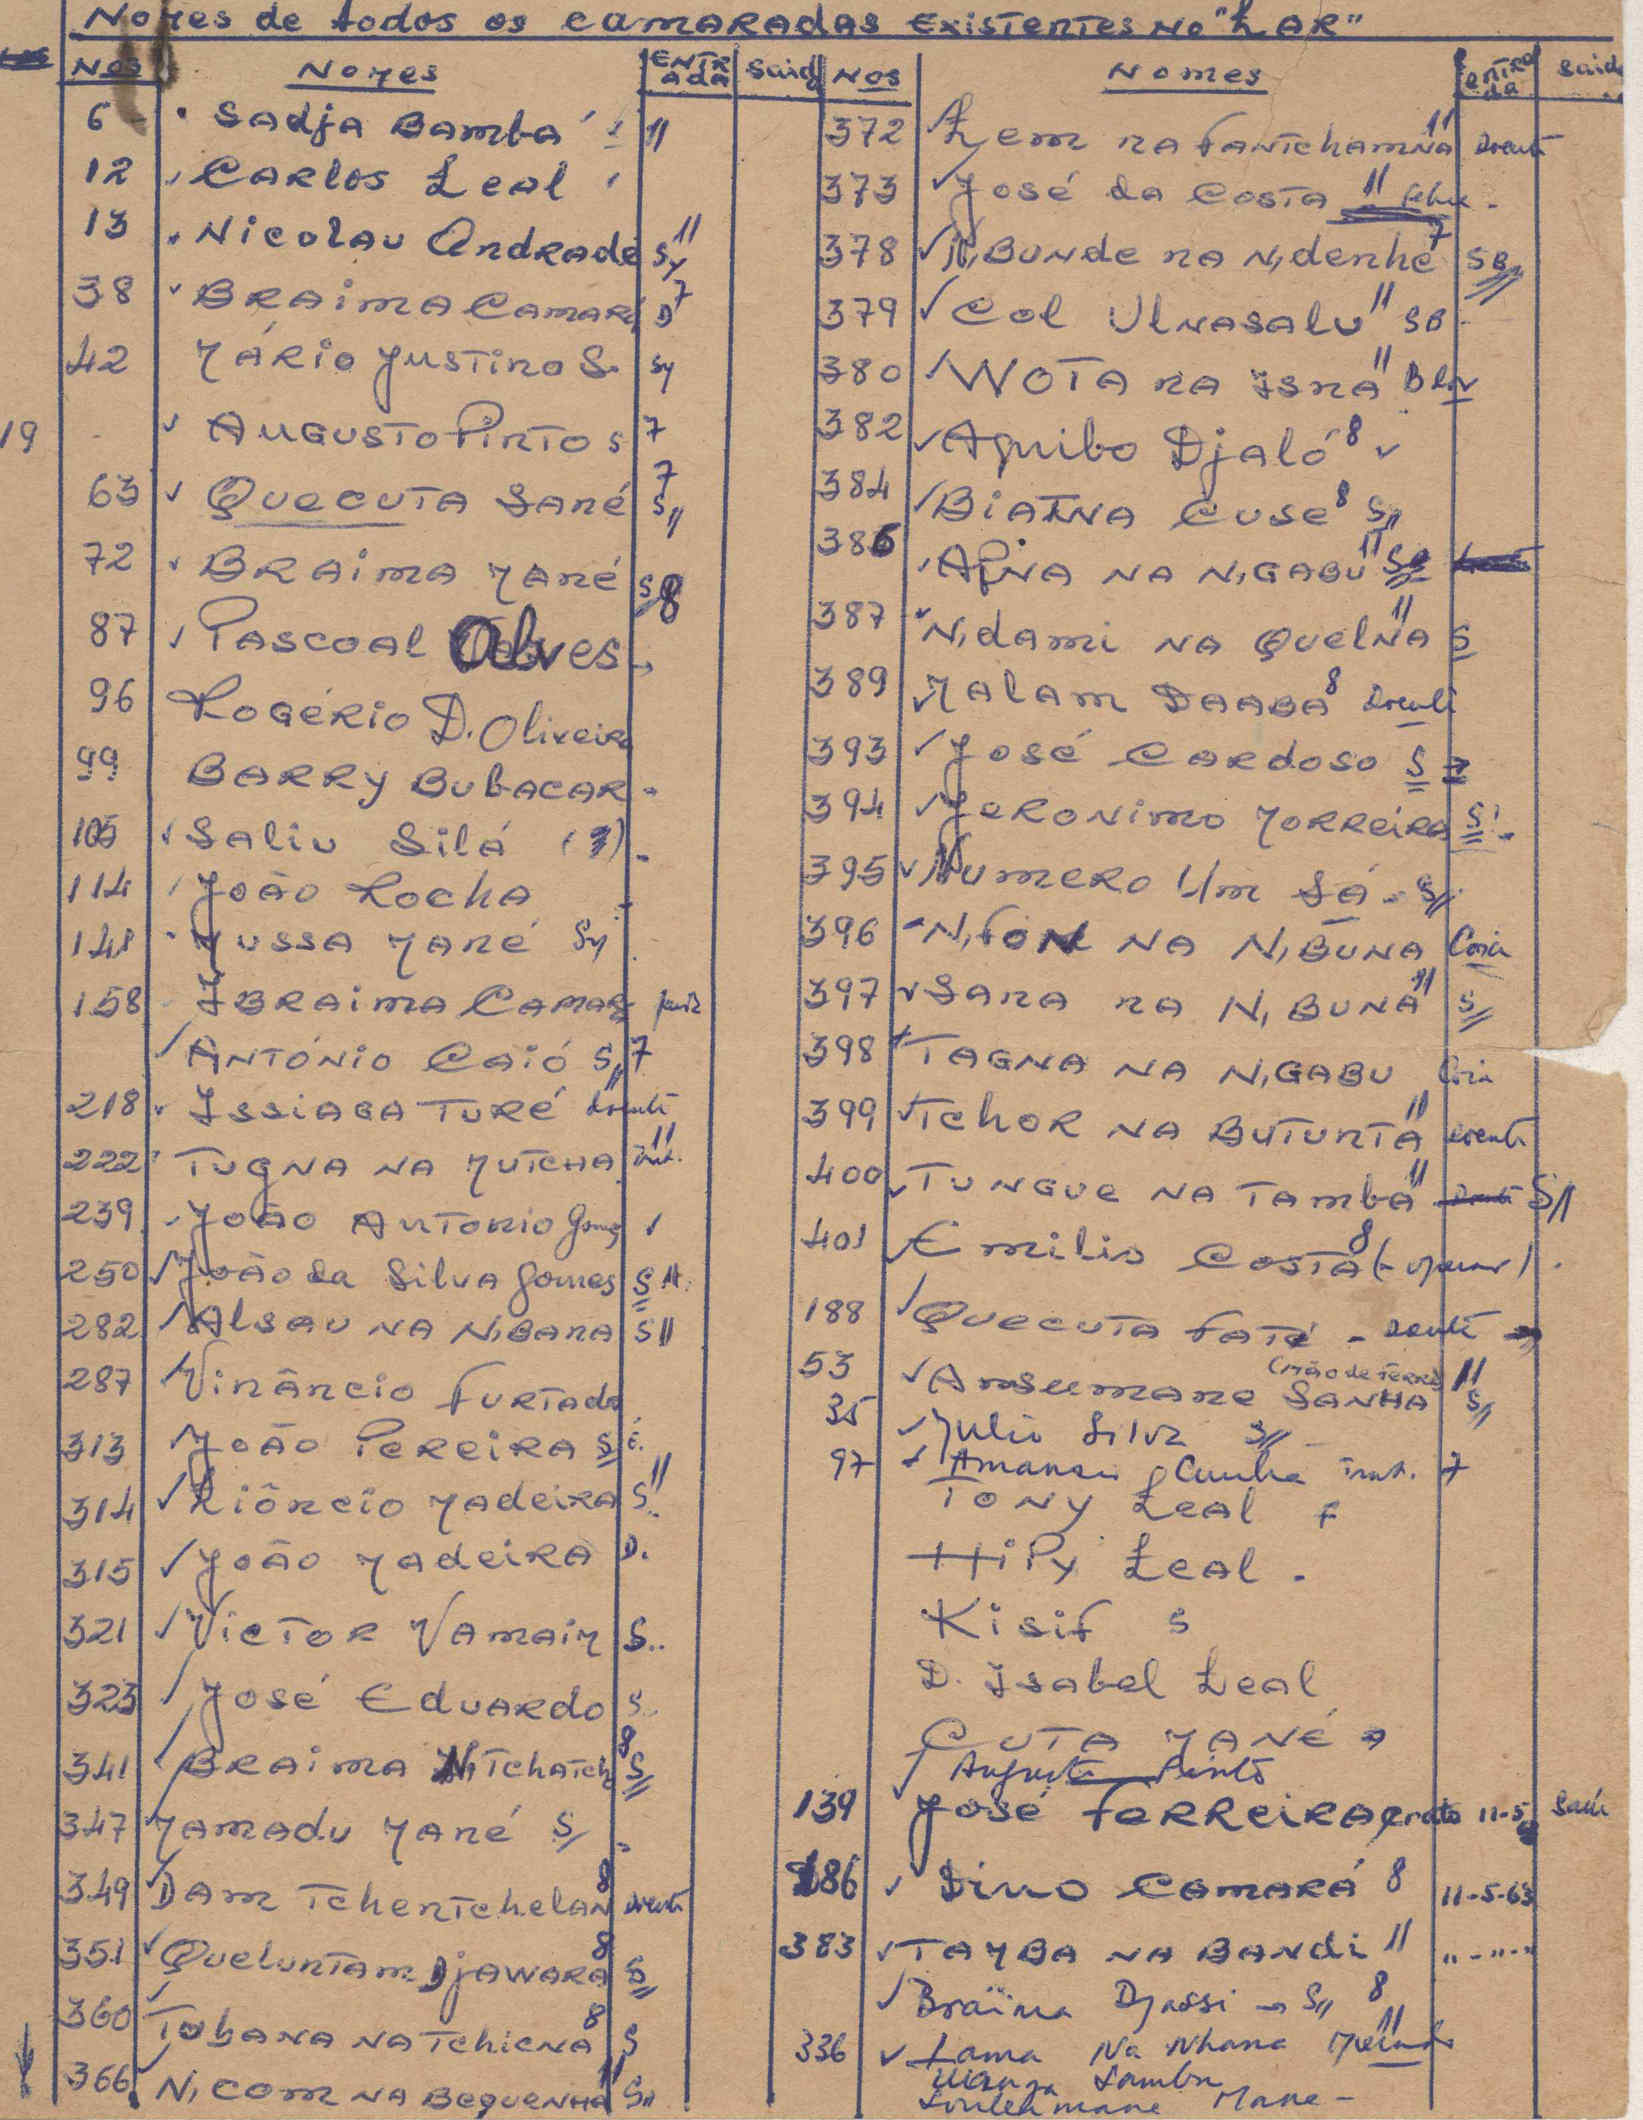 Nomes de todos os camaradas existentes no "Lar"
Nos Nomes Entrada Saida
6 Sadja Bambá
12 Carlos Leal
13 Nicolau Andrade
38 Braima Camará D 7
42 Mário Justino S.
19 Augusto Pinto S 7
63 Quecuta Sané S 7
72 Braima Mané S 8
87 Pascoal Alves
96 Rogério D. Oliveira
99 Barry Bubacar
105 Saliu Silá
114 João Rocha
148 Mussa Mané
158 Ibraima Camará
António Caió S 7
218 Issiaga Turé doente
222 Tugna na Mutcha
239 João Antonio Gomes
250 João da Silva Gomes S
282 Alsau na N,Bana S
287 Vinâncio Furtado
313 João Pereira S
314 Liôncio Madeira S
315 João Madeira D.
321 Victor Vamaim S
323 José Eduardo S
341 Braima N,Tchatch 8 S
347 Mamadu Mané S
349 Dam Tchentchelan 8 doente
351 Queluntam Djawara 8 S
360 Tobana na Tchicna 8 S
366 N,com na Bequenha 11 S
Nos Nomes entrada Saida
372 Lem na Fantchamna 11 doente
373 José da Costa 11
378 N,Bunde na N,denhe 7 SB
379 Col Ulnasalu 11 SB
380 Wota na Isna 11
382 Aguibo Djaló 8
384 Biatna Cuse 8 S
386 Apna na N,gabu 11
387 N,dami na Quelna 11 S
389 Malam Daaba 8 doente
393 José Cardoso S 7
394 Jeronimo Morreira S
395 Numero Um Sá S
396 N,fon na N,Buna
397 Sana na N,Buna 11 S
398 Tagna na N,gabu
399 Tchor na Butunta 11 doente
400 Tungue na Tamba 11 S
401 Emilio Costa 8
188 Quecuta Faté - doente
53 Ansumane Sanha (Mão de Ferro) 11 S
35 Julio Silva S
97 Cunha 7
Tony Leal
Hipy Leal
Kisif S
D. Isabel Leal
Cuta Mané
Augusto Pinto
139 José Ferreira 11-5 Saiu
186 Dino Camará 8 11-5-63
383 Tamba na Bandi 11 " - " - "
Braima Djassi S 8
336 Lama Na Nhana 11
Sambu
Mane